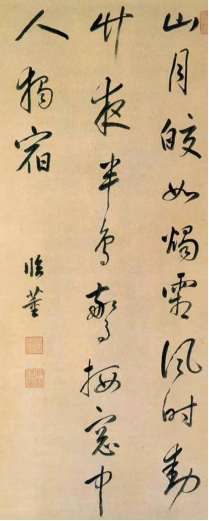 山月皎如燭霜風時動
竹夜半鳥驚棲窗中
人獨宿
臨董